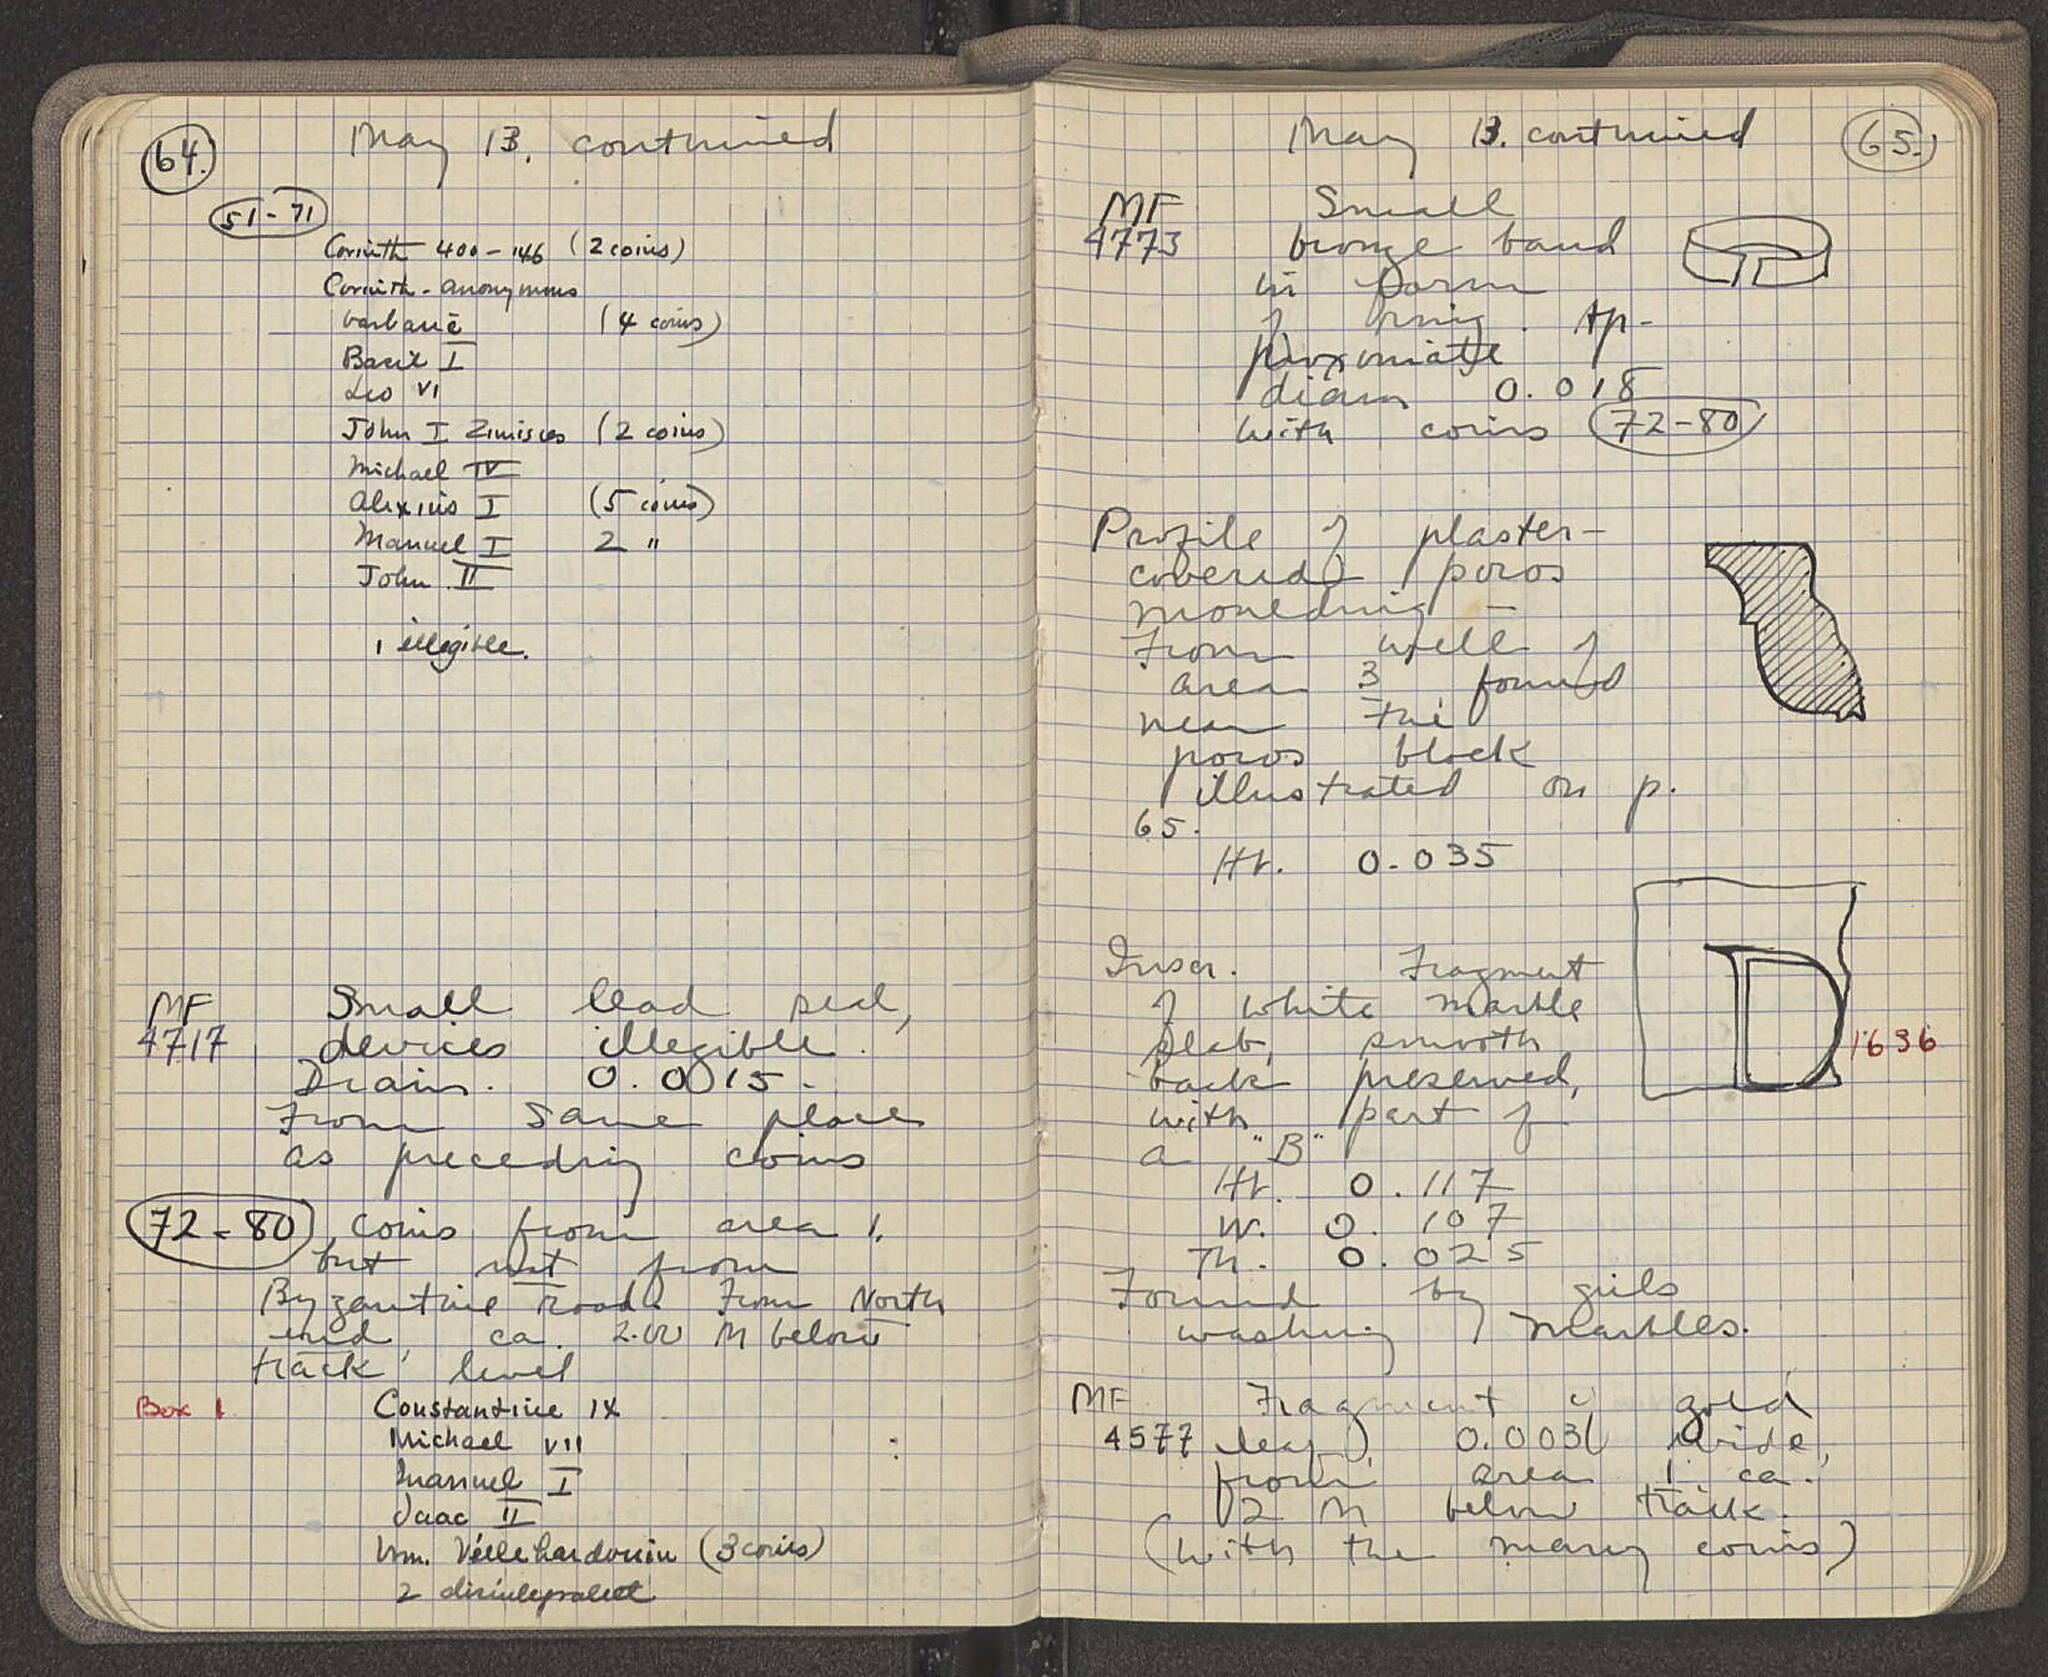 64.
May 13, continued
51-71
Corinth 400-146 (2 coins)
Corinth - anonymous
barbaric (4 coins)
Basil I
Leo VI
John I Zimisces (2 coins)
Michael IV
Alexius I (5 coins)
Manuel I 2 "
John II
1 illegible.
MF Small lead seal,
4717 devices illegible.
Diam. 0.0015.
From same place
as preceding coins
72-80 coins from area 1,
but not from
Byzantine road. From North
end, ca. 2.00 M below
track level
Box 1 Constantine IX
Michael VII
Manuel I
Isaac II
Wm. Villehardouin (3 coins)
2 disintegrated
May 13. continued
65.
MF Small
4773 bronze band
in form
of ring. Ap-
proximate
diam 0.018
with coins 72-80
Profile of plaster-
covered poros
moulding -
From well of
area 3, found
near the
poros block
illustrated on p.
65.
Ht. 0.035
Inscr. Fragment
of white marble
slab, smooth
back preserved,
with part of
a "B"
D
1636
Ht. 0.117
W. 0.107
Th. 0.025
Found by girls
washing marbles.
MF Fragment of gold
4577 leaf, 0.003 wide,
from area 1 ca.
2 M below track.
(with the many coins)